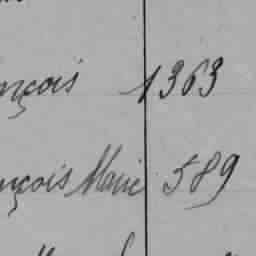 nçois 1363
nçois Marie 589